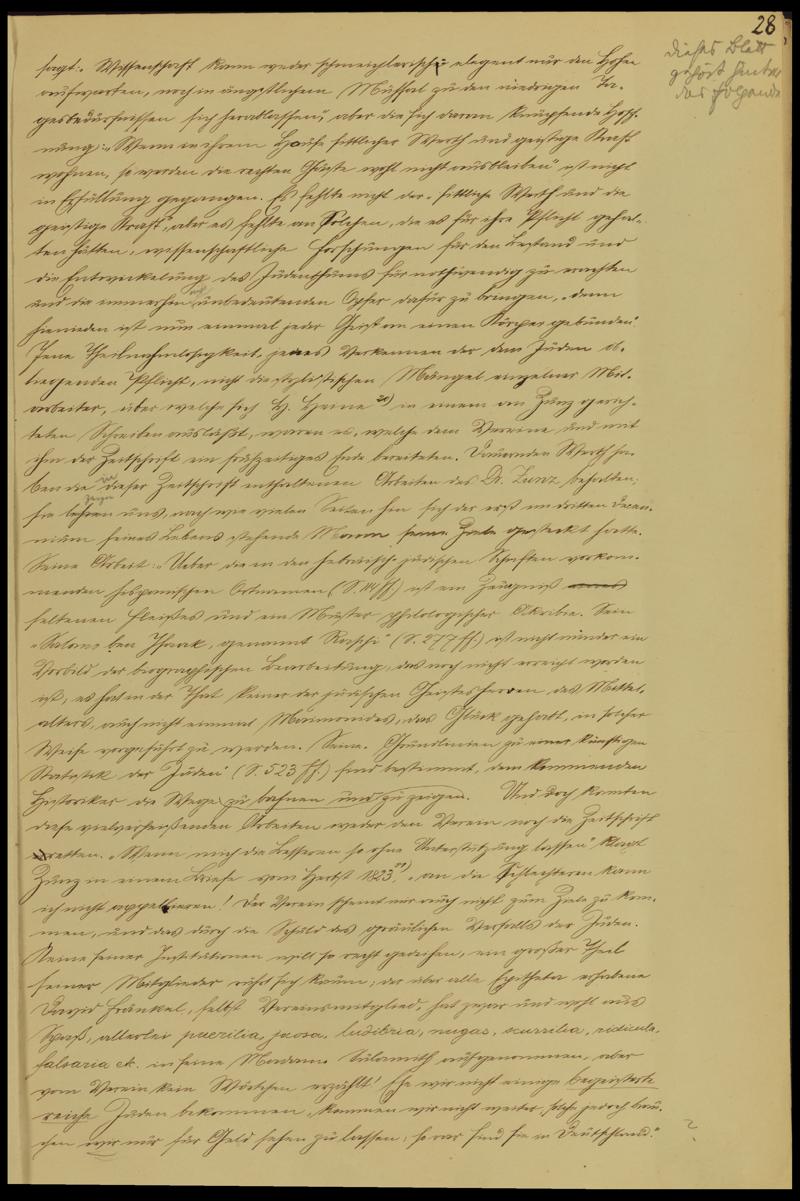 28
dieses Blatt
gehört hinter
das folgende
sagt: Wissenschaft kann weder schmeichlerisch elegant nur den Hohen
aufwarten, noch in ängstlichem Mühsal zu den niedrigen Ta-
gesbedürfnissen sich herablassen", aber die sich daran knüpfende Hoff-
nung: „Wenn in ihrem Hause sittlicher Werth und geistige Kraft
wohnen, so werden die rechten Gäste wohl nicht ausbleiben" ist nicht
in Erfüllung gegangen. Es fehlte nicht der „sittliche Werth und die
geistige Kraft", aber es fehlte an Solchen, die es für ihre Pflicht gehal-
ten hätten, wissenschaftliche Forschungen für den Bestand und
die Entwickelung des Judenthums für nothwendig zu erachten
und die immerhin nicht unbedeutenden Opfer dafür zu bringen, „denn
hienieden ist nun einmal jeder Geist an einen Körper gebunden".
Jene Theilnahmlosigkeit, jenes Verkennen der dem Juden ob-
liegenden Pflicht, nicht die stylistischen Mängel einzelner Mit-
arbeiter, über welche sich H. Heine 20) in einem an Zunz gerich-
teten Schreiben ausläßt, waren es, welche dem Vereine und mit
ihm der Zeitschrift ein frühzeitiges Ende bereiteten. Dauernden Werth ha-
ben die in dieser Zeitschrift enthaltenen Arbeiten des Dr. Zunz behalten;
sie zeigen uns, nach wie vielen Seiten hin sich der erst im dritten Decen-
nium seines Lebens stehende Mann seine Ziele gesteckt hatte.
Seine Arbeit: „Ueber die in den hebräisch-jüdischen Schriften vorkom-
menden hispanischen Ortnamen (S. 114 ff.) ist ein Zeugniß
seltenen Fleißes und ein Muster philologischer Akribie. Sein
„Salomo ben Isaac, genannt Raschi" (S. 277 ff.) ist nicht minder ein
Vorbild der biographischen Bearbeitung, das noch nicht erreicht worden
ist; es hat in der That keiner der jüdischen Geistesheroen des Mittel-
alters, auch nicht einmal Maimonides, das Glück gehabt, in solcher
Weise vorgeführt zu werden. Seine „Grundlinien zu einer künftigen
Statistik der Juden" (S. 523 ff.) sind bestimmt, dem kommenden
Historiker die Wege zu bahnen und zu zeigen. Und doch konnten
diese vielverheißenden Arbeiten weder den Verein noch die Zeitschrift
retten. „Wenn mich die Besseren so ohne Unterstützung lassen" klagt
Zunz in einem Briefe vom Herbst 1823 21), „an die Schlechteren kann
ich nicht appelliren! Der Verein scheint mir auch nicht zum Ziele zu kom-
men, und das durch die Schuld des gräulichen Verfalls der Juden.
Keine seiner Institutionen will so recht gedeihen, ein großer Theil
seiner Mitglieder rührt sich kaum; der über alle Epitheta erhabene
David Fränkel, selbst Vereinsmitglied, hat zwar und wohl aus
Spaß, allerlei puerilia, jocosa, ludibria, nugas, scurrilia, ridicula,
falsaria etc. in seine Madame Sulamith aufgenommen, aber
vom Verein kein Wörtchen erzählt! Ehe wir nicht einige begeisterte
reiche Juden bekommen, kommen wir nicht weiter, solche jedoch brau-
chen wir nur für Geld sehen zu lassen, so rar sind sie in Deutschland."
?